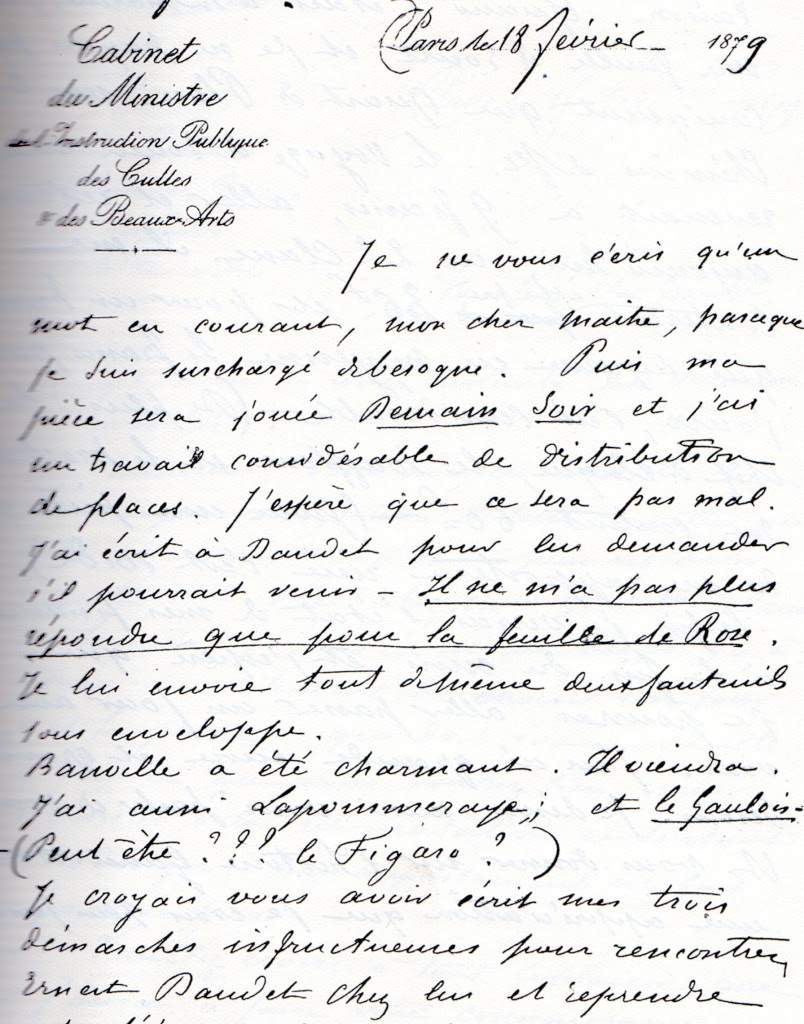 Cabinet
du Ministre
de l'Instruction Publique
des Cultes
& des Beaux-Arts
Paris le 18 février 1879
Je ne vous écris qu'un
mot en courant, mon cher maître, parceque
je suis surchargé de besogne. Puis ma
pièce sera jouée Demain Soir et j'ai
un travail considérable de distribution
de places. J'espère que ce sera pas mal.
J'ai écrit à Daudet pour lui demander
s'il pourrait venir – Il ne m'a pas plus
répondu que pour la feuille de Rose.
Je lui envoie tout de même deux fauteuils
sous enveloppe.
Banville a été charmant. Il viendra.
J'ai aussi Lapommeraye; et le Gaulois –
– (Peut être ??? le Figaro ?)
Je croyais vous avoir écrit mes trois
démarches infructueuses pour rencontrer
Ernest Daudet chez lui et reprendre